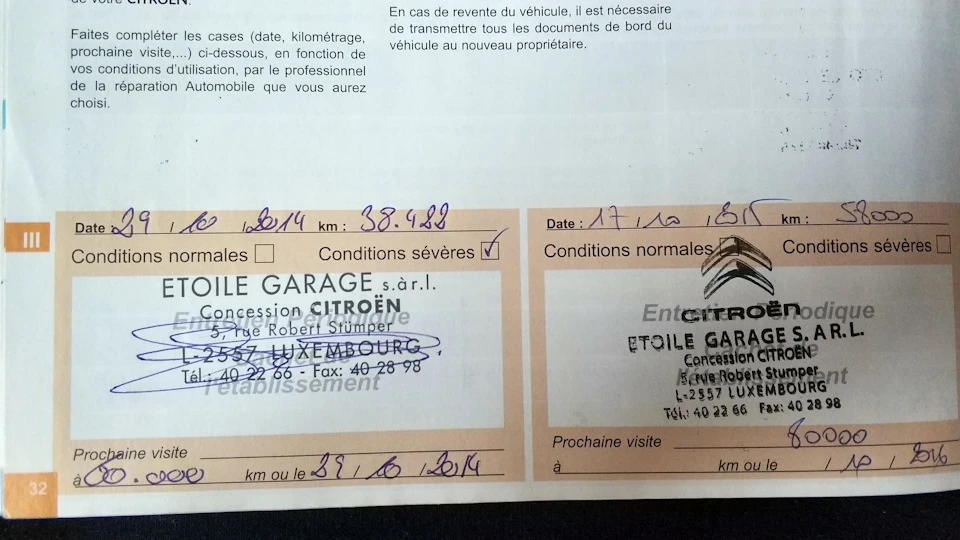 de votre CITROËN.
Faites compléter les cases (date, kilométrage,
prochaine visite,...) ci-dessous, en fonction de
vos conditions d'utilisation, par le professionnel
de la réparation Automobile que vous aurez
choisi.
En cas de revente du véhicule, il est nécessaire
de transmettre tous les documents de bord du
véhicule au nouveau propriétaire.
III
Date : 29 / 10 / 2014 km : 38.422
Conditions normales Conditions sévères
ETOILE GARAGE s.àr.l.
Concession CITROËN
Entretien Périodique
5, rue Robert Stümper
L-2557 LUXEMBOURG
Tél.: 40 22 66 - Fax: 40 28 98
l'établissement
Prochaine visite
à 60.000 km ou le 29 / 10 / 2014
Date : 17 / 10 / 2015 km : 58000
Conditions normales Conditions sévères
Entretien Périodique
CITROËN
ETOILE GARAGE S.AR.L.
Concession CITROËN
5, rue Robert Stumper
L-2557 LUXEMBOURG
Tél.: 40 22 66 Fax: 40 28 98
Prochaine visite 80000
à km ou le / 10 / 2016
32